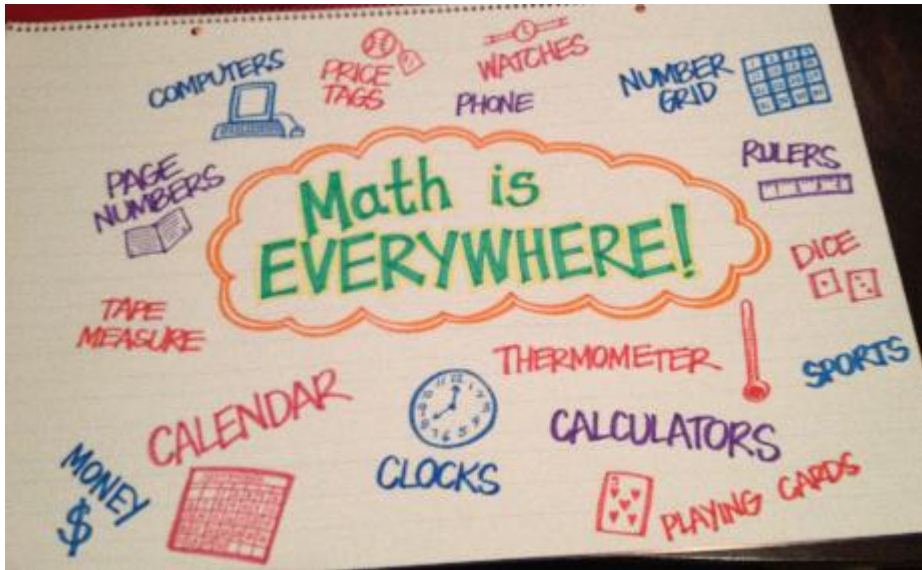 COMPUTERS
PRICE
TAGS
WATCHES
PHONE
NUMBER
GRID
PAGE
NUMBERS
Math is
EVERYWHERE!
RULERS
DICE
TAPE
MEASURE
THERMOMETER
SPORTS
CALENDAR
CLOCKS
CALCULATORS
MONEY
$
PLAYING CARDS